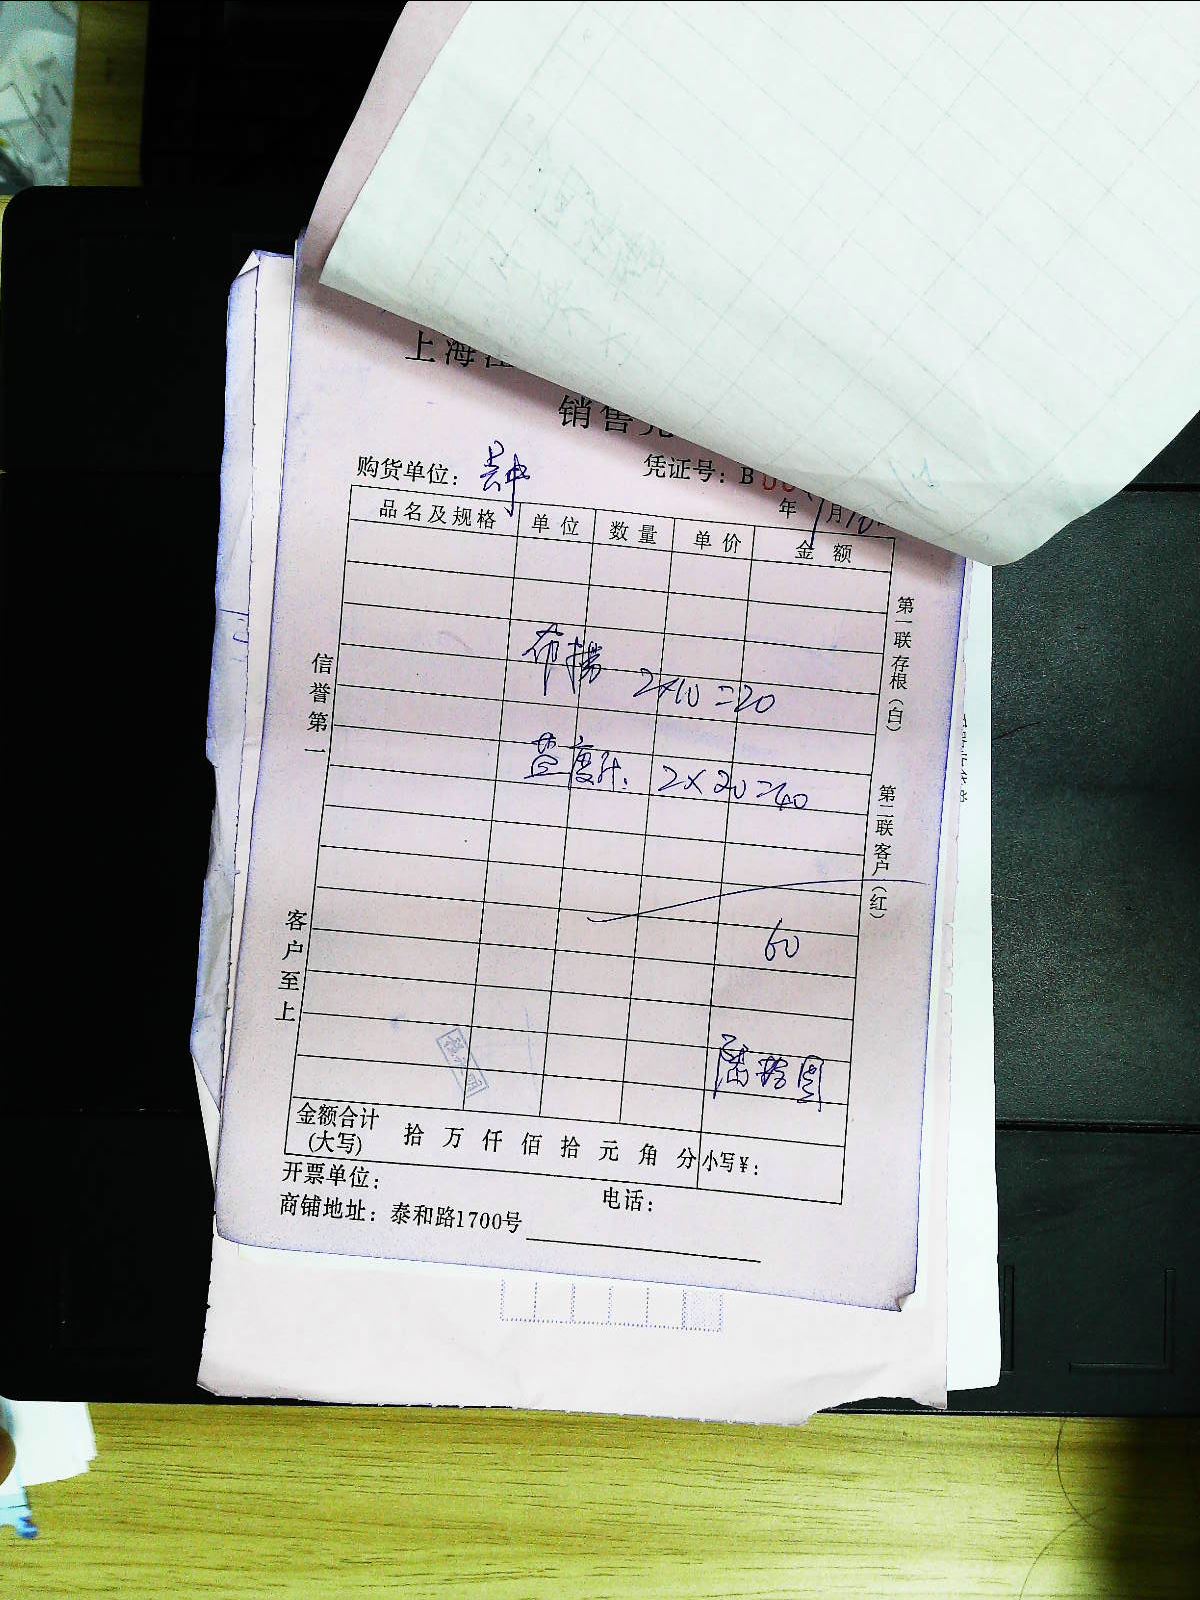 上海江
销售凭
购货单位:
凭证号: B 00
年 月10
品名及规格 单位 数量 单价 金额
布捞 2×10=20
盐度计: 2×20=40
60
陆拾圆
金额合计(大写) 拾 万 仟 佰 拾 元 角 分 小写¥:
开票单位: 电话:
商铺地址: 泰和路1700号
信誉第一
客户至上
第一联存根(白)
第二联客户(红)